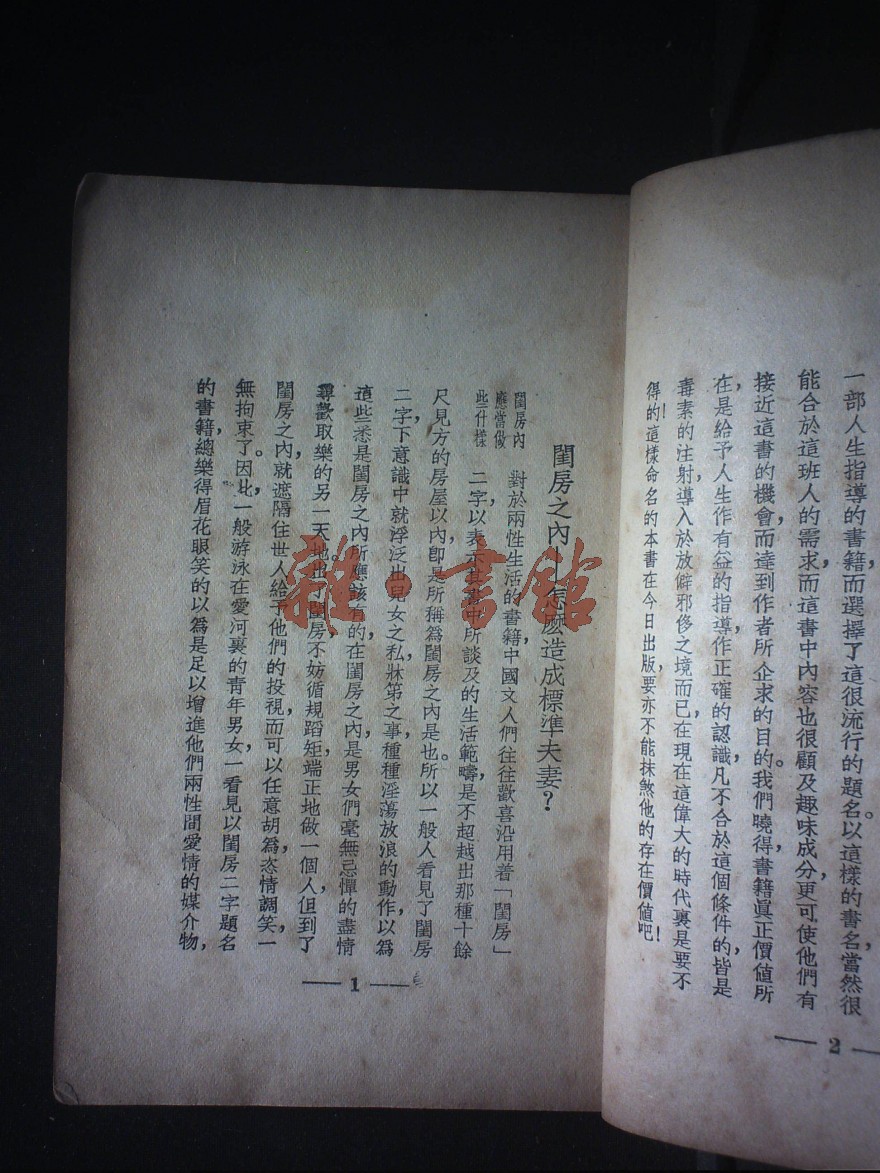 一部人生指導的書籍,而選擇了這很流行的題名。以這樣的書名,當然很
能合於這班人的需求,而這書中內容也很顧及趣味成分,更可使他們有
接近這書的機會,而達到作者所企求的目的。我們曉得書籍眞正價値所
在,是給予人生作有益的指導,作正確的認識,凡不合於這個條件的,皆是
毒素的注射,導入於放僻邪侈之境而已,在現在這偉大的時代裏,是要不
得的!這樣命名的本書在今日出版,要亦不能抹煞他的存在價値吧!
— 2 —
閨房之內—怎麽造成標準夫妻?
閨房內
應當做
些什樣
對於兩性生活的書籍,中國文人們往往歡喜沿用着「閨房」
二字以表示其書中所談及的生活範疇,是不超越出那種十餘
尺見方的房屋以內,卽是所稱爲閨房之內是也。所以一般人看見了閨房
二字,下意識中就浮泛出兒女之私,牀笫之事,種種淫蕩放浪的動作,以爲
這些悉是閨房之內所應該有的,在閨房之內,是男女們毫無忌憚的盡情
尋歡取樂的另一天地,出閨房不妨循規蹈矩,端正地做一個人,但到了
閨房之內,就遮隔住世人給予他們的投視,而可以任意胡爲,恣情調笑,一
無拘束了。因此,一般游泳在愛河裏的青年男女,一看見以閨房二字題名
的書籍,總樂得眉花眼笑的,以爲是足以增進他們兩性間愛情的媒介物,
— 1 —
雜·書館